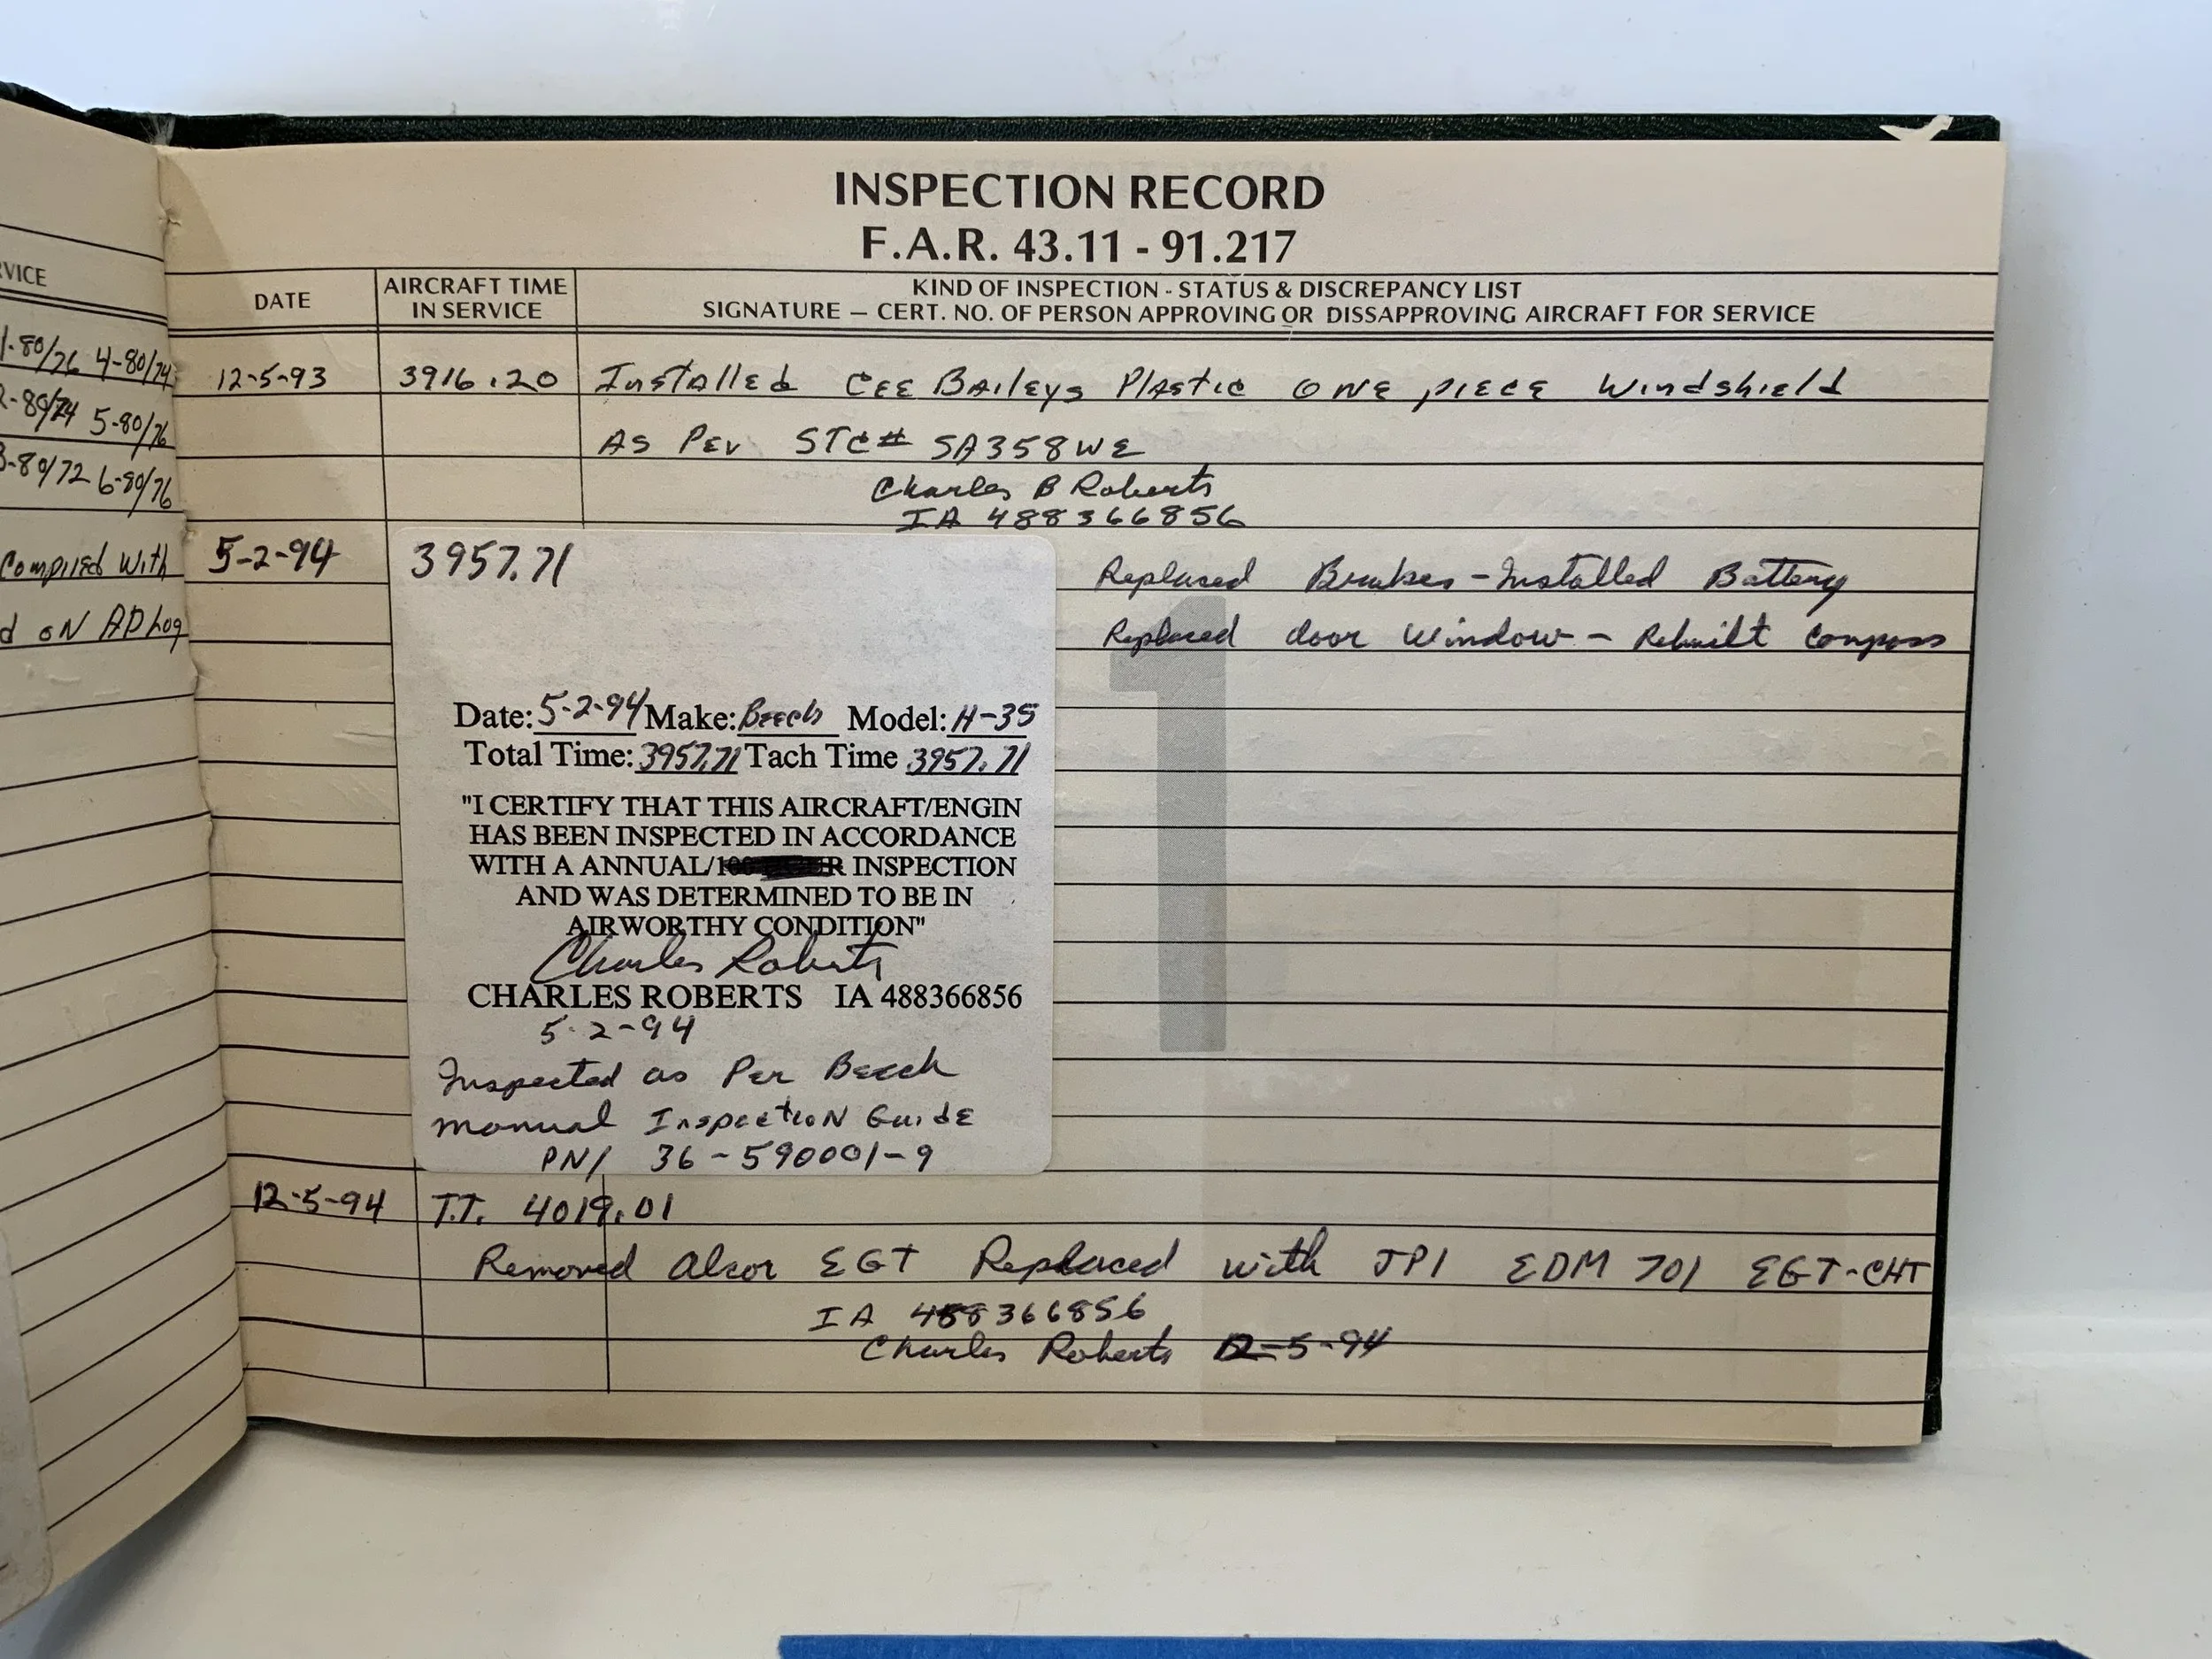 RVICE
1-80/76 4-80/74
2-80/74 5-80/76
3-80/72 6-80/76
Complied With
d ON AD Log
INSPECTION RECORD
F.A.R. 43.11 - 91.217
DATE
AIRCRAFT TIME
IN SERVICE
KIND OF INSPECTION - STATUS & DISCREPANCY LIST
SIGNATURE — CERT. NO. OF PERSON APPROVING OR DISSAPPROVING AIRCRAFT FOR SERVICE
12-5-93 3916.20 Installed CEE BAileys Plastic ONE piece Windshield
AS Per STC# SA358WE
Charles B Roberts
IA 488366856
5-2-94 3957.71 Replaced Brakes - Installed Battery
Replaced door Window - Rebuilt Compass
Date: 5-2-94 Make: Beech Model: H-35
Total Time: 3957.71 Tach Time 3957.71
"I CERTIFY THAT THIS AIRCRAFT/ENGIN
HAS BEEN INSPECTED IN ACCORDANCE
WITH A ANNUAL/ INSPECTION
AND WAS DETERMINED TO BE IN
AIRWORTHY CONDITION"
Charles Roberts
CHARLES ROBERTS IA 488366856
5-2-94
Inspected as Per Beech
manual Inspection Guide
PN/ 36-590001-9
1
12-5-94 T.T. 4019.01
Removed Alcor EGT Replaced with JPI EDM 701 EGT-CHT
IA 488366856
Charles Roberts 12-5-94